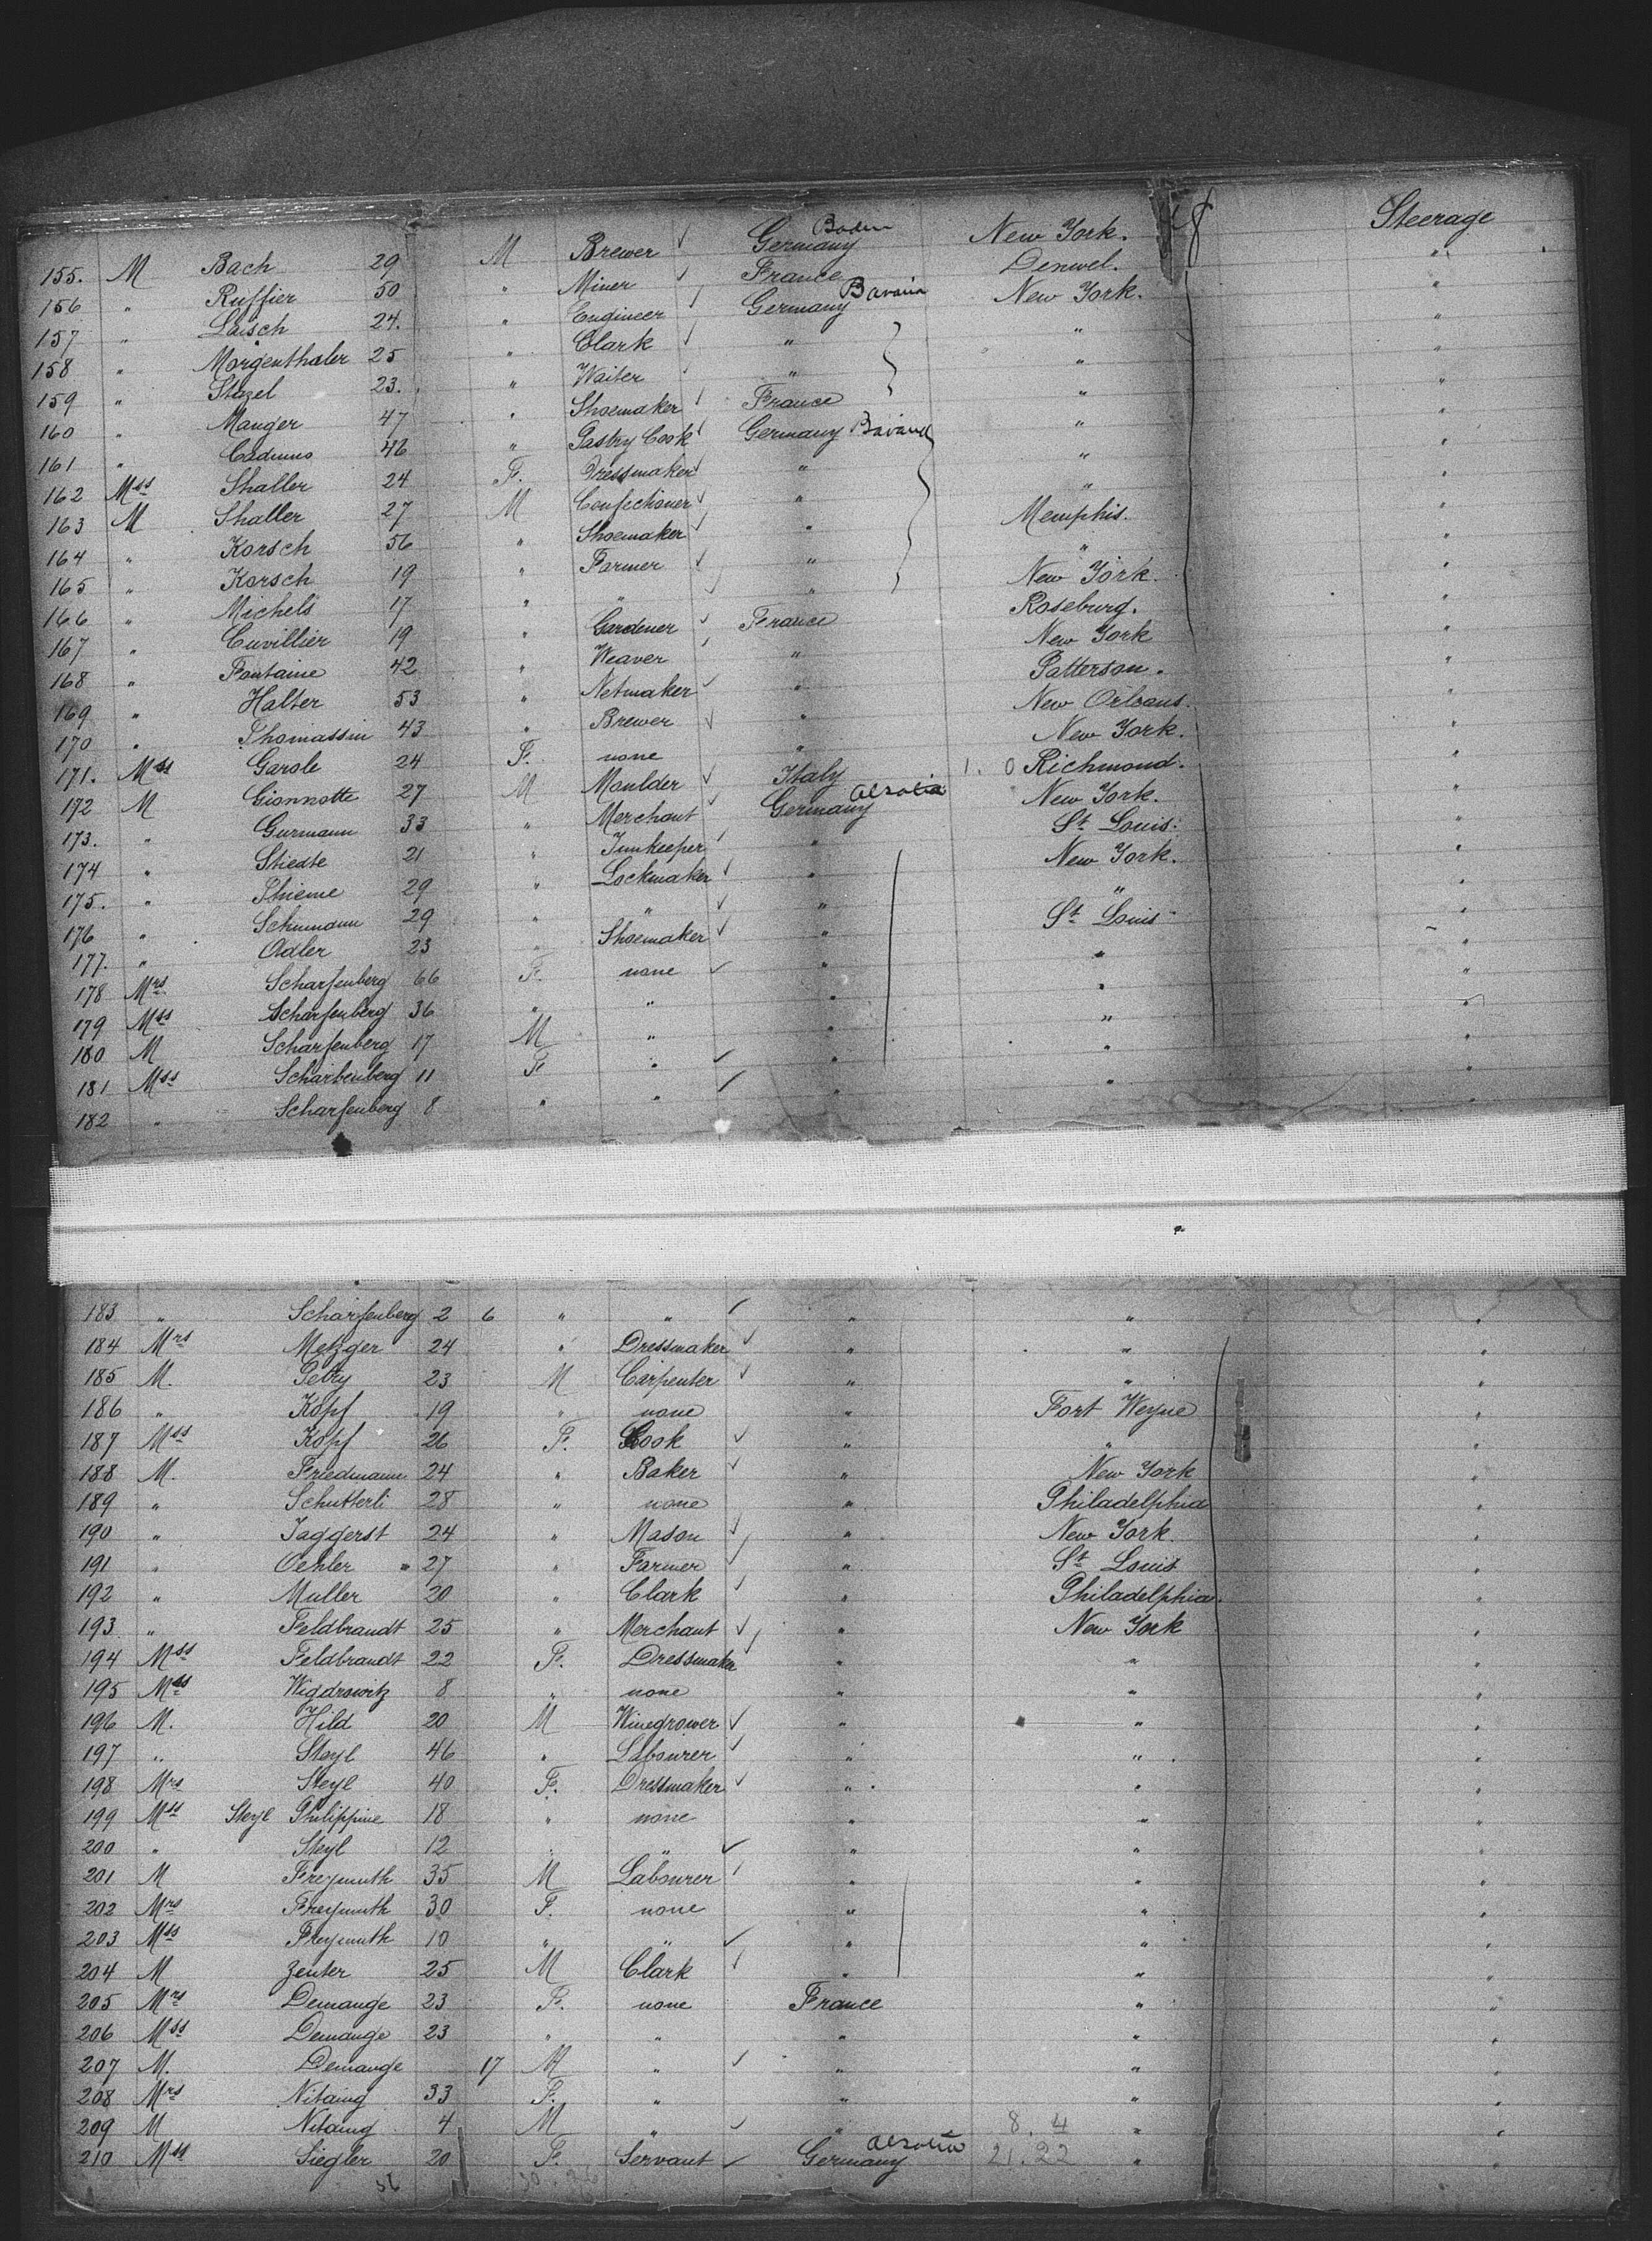 155. M Bach 29 M Brewer ✓ Germany Baden New York. Steerage
156 " Ruffier 50 " Miner ✓ France Denwel. "
157 " Laisch 24. " Engineer ✓ Germany Bavaria New York. "
158 " Morgenthaler 25 " Clark ✓ " " "
159 " Stazel 23. " Waiter ✓ " " "
160 " Manger 47 " Shoemaker ✓ France " "
161 " 46 " Pastry Cook ✓ Germany " "
162 Mss Shaller 24 F. Dressmaker ✓ " " "
163 M Shaller 27 M Confectioner ✓ " " "
164 " Korsch 56 " Shoemaker ✓ " Memphis. "
165 " Korsch 19 " Farmer ✓ " " "
166 " Michels 17 " " ✓ " New York. "
167 " Cuvillier 19 " Gardener ✓ France Roseburg. "
168 " Fontaine 42 " Weaver ✓ " New York "
169 " Halter 53 " Netmaker ✓ " Patterson. "
170 " Thomassin 43 " Brewer ✓ " New Orleans. "
171. Mss Garole 24 F. none " New York. "
172 M Gionnotte 27 M Moulder ✓ Italy 1. 0 Richmond. "
173. " Gurmann 33 " Merchant ✓ Germany Alsatia New York. "
174 " Stiedte 21 " Innkeeper ✓ " St Louis. "
175. " Thieme 29 " Lockmaker ✓ " New York. "
176 " Schumann 29 " " ✓ " " "
177. " Adler 23 " Shoemaker ✓ " St Louis "
178 Mrs Scharfenberg 66 F. none ✓ " " "
179 Mss Scharfenberg 36 " " " " "
180 M Scharfenberg 17 M " " " "
181 Mss Scharbenberg 11 F " ✓ " " "
182 " Scharfenberg 8 " " ✓ " " "
183 " Scharfenberg 2 6 " " ✓ " " "
184 Mrs Metzger 24 " Dressmaker ✓ " " "
185 M. Petry 23 M Carpenter ✓ " " "
186 " Kopf 19 " none " Fort Weyne "
187 Mss Kopf 26 F. Cook ✓ " " "
188 M. Friedmann 24 " Baker ✓ " New York "
189 " Schutterli 28 " none " Philadelphia "
190 " Jaggerst 24 " Mason ✓ " New York. "
191 " Oehler 27 " Farmer ✓ " St Louis "
192 " Muller 20 " Clark ✓ " Philadelphia. "
193 " Feldbrandt 25 " Merchant ✓ " New York "
194 Mss Feldbrandt 22 F. Dressmaker ✓ " " "
195 Mss Wigdrowitz 8 " none " " "
196 M. Hild 20 M Winegrower ✓ " " "
197 " Steyl 46 " Labourer ✓ " " "
198 Mrs Steyl 40 F. Dressmaker ✓ " " "
199 Mss Steyl Philippine 18 " none " " "
200 " Steyl 12 " " ✓ " " "
201 M Freymuth 35 M Labourer ✓ " " "
202 Mrs Freymuth 30 F. none " " "
203 Mss Freymuth 10 " " ✓ " " "
204 M Zenter 25 M Clark ✓ " " "
205 Mrs Demange 23 F. none France " "
206 Mss Demange 23 " " " " "
207 M. Demange 17 M " ✓ " " "
208 Mrs Nitaing 33 F. " " " "
209 M Nitaing 4 M " ✓ " 8. 4 " "
210 Mss Siegler 20 F. Servant ✓ Germany Alsatia 21. 22 " "
56